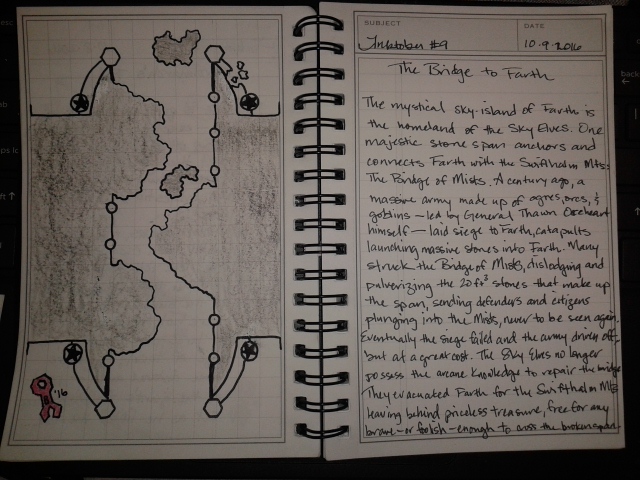 '16
SUBJECT
DATE
Inktober #9
10.9.2016
The Bridge to Farth
The mystical sky-island of Farth is
the homeland of the Sky Elves. One
majestic stone span anchors and
connects Farth with the Swiftholm Mts:
The Bridge of Mists. A century ago, a
massive army made up of ogres, orcs, &
goblins — led by General Thawn
himself — laid siege to Farth, catapults
launching massive stones into Farth. Many
struck the Bridge of Mists, dislodging and
pulverizing the 20 ft³ stones that make up
the span, sending defenders and citizens
plunging into the Mists, never to be seen again.
Eventually the siege failed and the army driven off,
but at a great cost. The Sky Elves no longer
possess the arcane knowledge to repair the bridge.
They evacuated Farth for the Swiftholm Mts
leaving behind priceless treasure, free for any
brave — or foolish — enough to cross the broken span.